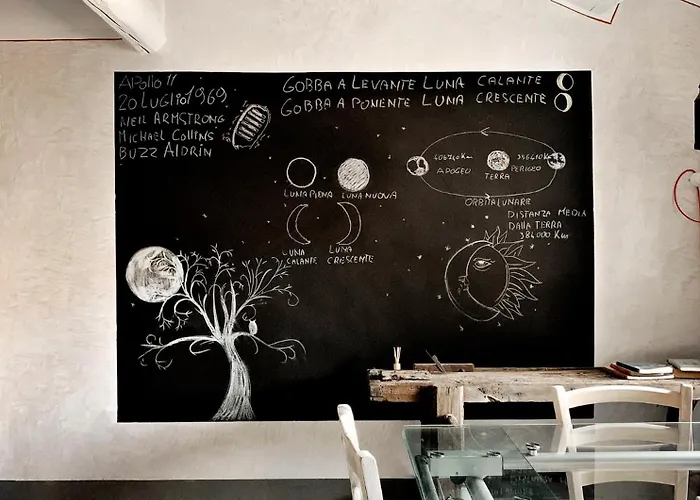 APOLLO 11
20 LUGLIO 1969
NEIL ARMSTRONG
MICHAEL COLLINS
BUZZ ALDRIN
GOBBA A LEVANTE LUNA CALANTE
GOBBA A PONENTE LUNA CRESCENTE
LUNA PIENA
LUNA NUOVA
LUNA CALANTE
LUNA CRESCENTE
406740 Km
APOGEO
TERRA
356410 Km
PERIGEO
ORBITA LUNARE
DISTANZA MEDIA
DALLA TERRA
384000 Km